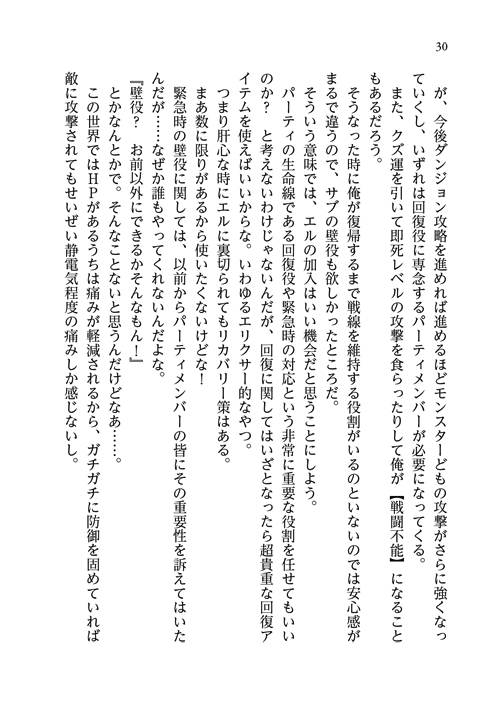 30
が、今後ダンジョン攻略を進めれば進めるほどモンスターどもの攻撃がさらに強くなっ
ていくし、いずれは回復役に専念するパーティメンバーが必要になってくる。
また、クズ運を引いて即死レベルの攻撃を食らったりして俺が【戦闘不能】になること
もあるだろう。
そうなった時に俺が復帰するまで戦線を維持する役割がいるのといないのでは安心感が
まるで違うので、サブの壁役も欲しかったところだ。
そういう意味では、エルの加入はいい機会だと思うことにしよう。
パーティの生命線である回復役や緊急時の対応という非常に重要な役割を任せてもいい
のか？　と考えないわけじゃないんだが、回復に関してはいざとなったら超貴重な回復ア
イテムを使えばいいからな。いわゆるエリクサー的なやつ。
つまり肝心な時にエルに裏切られてもリカバリー策はある。
まあ数に限りがあるから使いたくないけどな！
緊急時の壁役に関しては、以前からパーティメンバーの皆にその重要性を訴えてはいた
んだが……なぜか誰もやってくれないんだよな。
『壁役？　お前以外にできるかそんなもん！』
とかなんとかで。そんなことないと思うんだけどなあ……。
この世界ではＨＰがあるうちは痛みが軽減されるから、ガチガチに防御を固めていれば
敵に攻撃されてもせいぜい静電気程度の痛みしか感じないし。